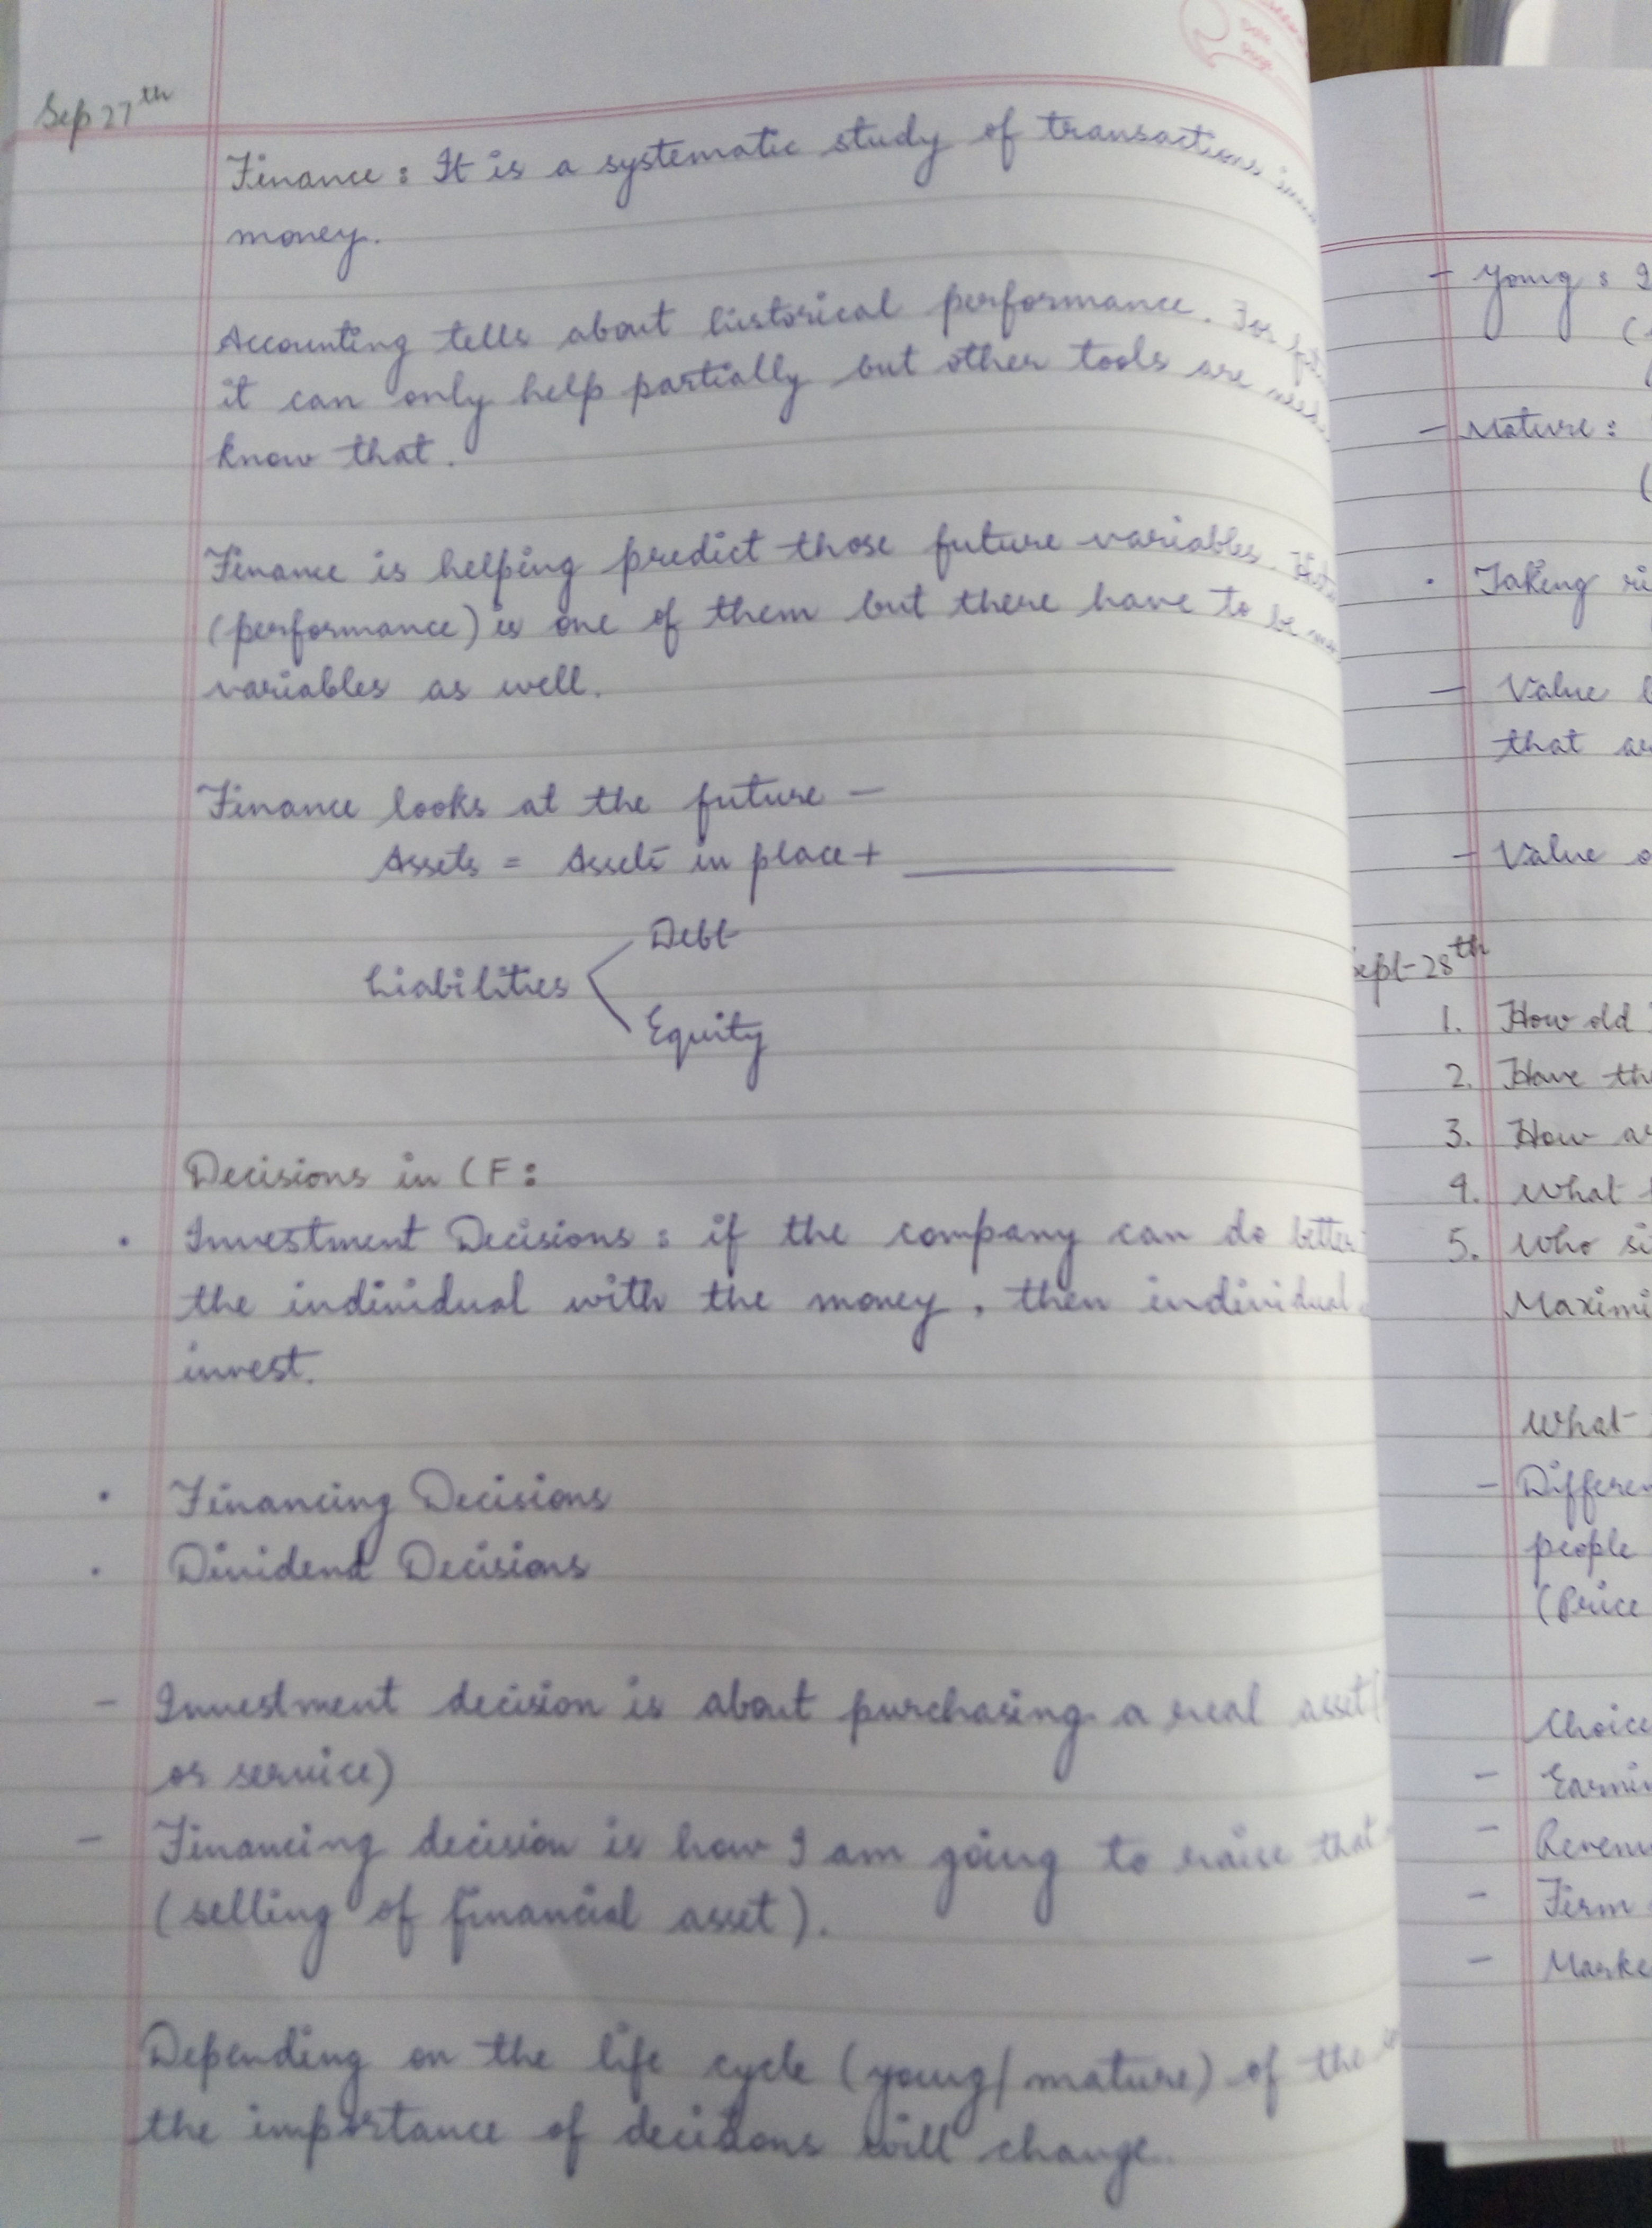 Sep 27th
Finance : It is a systematic study of transactions
money.
Accounting tells about historical performance. For
it can only help partially but other tools are
know that.
Finance is helping predict those future variables.
(performance) is one of them but there have to be
variables as well.
Finance looks at the future —
Assets = Assets in place + ________
Liabilities
Debt
Equity
Decisions in CF :
• Investment Decisions : if the company can do better
the individual with the money, then individual
invest.
• Financing Decisions
• Dividend Decisions
- Investment decision is about purchasing a real asset (
or service)
- Financing decision is how I am going to raise that
(selling of financial asset).
Depending on the life cycle (young/mature) of the
the importance of decisions will change.
- Young :
- Mature :
• Taking
- Value
that
- Value
Sept-28th
1. How old
2. Have
3. How
4. What
5. Who
What
-
people
(Price
-
-
- Firm
-